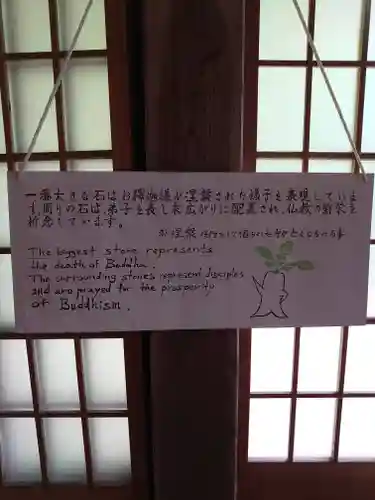 一番大きな石はお釈迦様が涅槃された様子を表現していま
す。周りの石は、弟子を表し末広がりに配置され、仏教の繁栄を
祈念しています。
※涅槃
The biggest stone represents
the death of Buddha.
The surrounding stones represent disciples
and are prayed for the prosperity
of Buddhism.